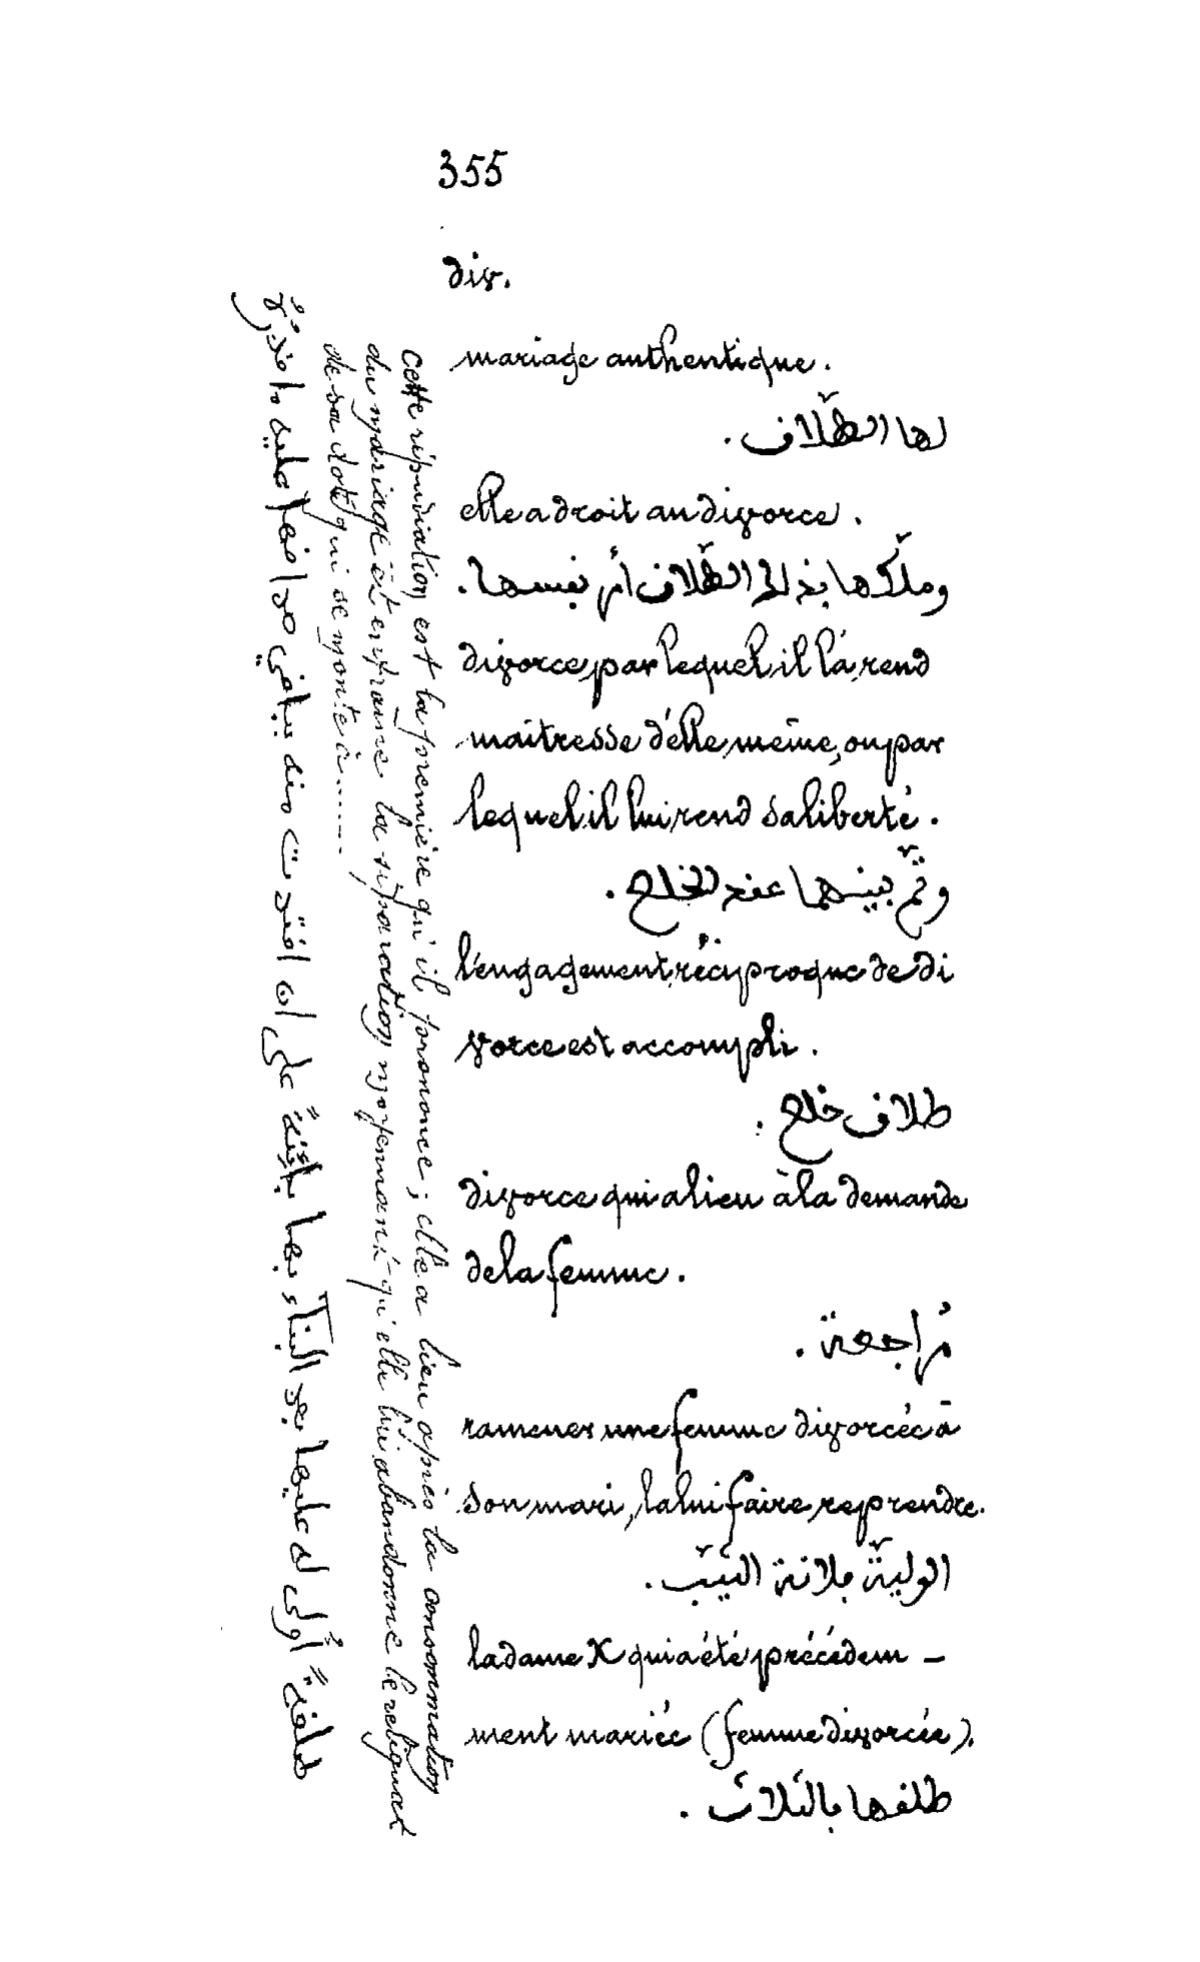 355
div.
mariage authentique.
لها الطّلاق.
elle a droit au divorce.
وملّكها بذلك الطّلاق أمر نفسها.
divorce par lequel il la rend
maîtresse d'elle même, ou par
lequel il lui rend sa liberté.
وتمّ بينهما عقد الخلع.
l'engagement réciproque de di
vorce est accompli.
طلاق خلع.
divorce qui a lieu à la demande
de la femme.
مُراجعة.
ramener une femme divorcée à
son mari, la lui faire reprendre.
الوليّة فلانة الثّيّب.
la dame X qui a été précédem-
ment mariée (femme divorcée).
طلقها بالثلاث.
Cette répudiation est la première qu'il prononce; elle a lieu après la consommation
du mariage et entraîne la séparation moyennant qu'elle lui abandonne le reliquat
de sa dot qui se monte à......
طلقةً أُولى له عليها بعد البنآء بها بائنةً على ان افتدت منه بباقي صداقها عليه وقدرُهُ